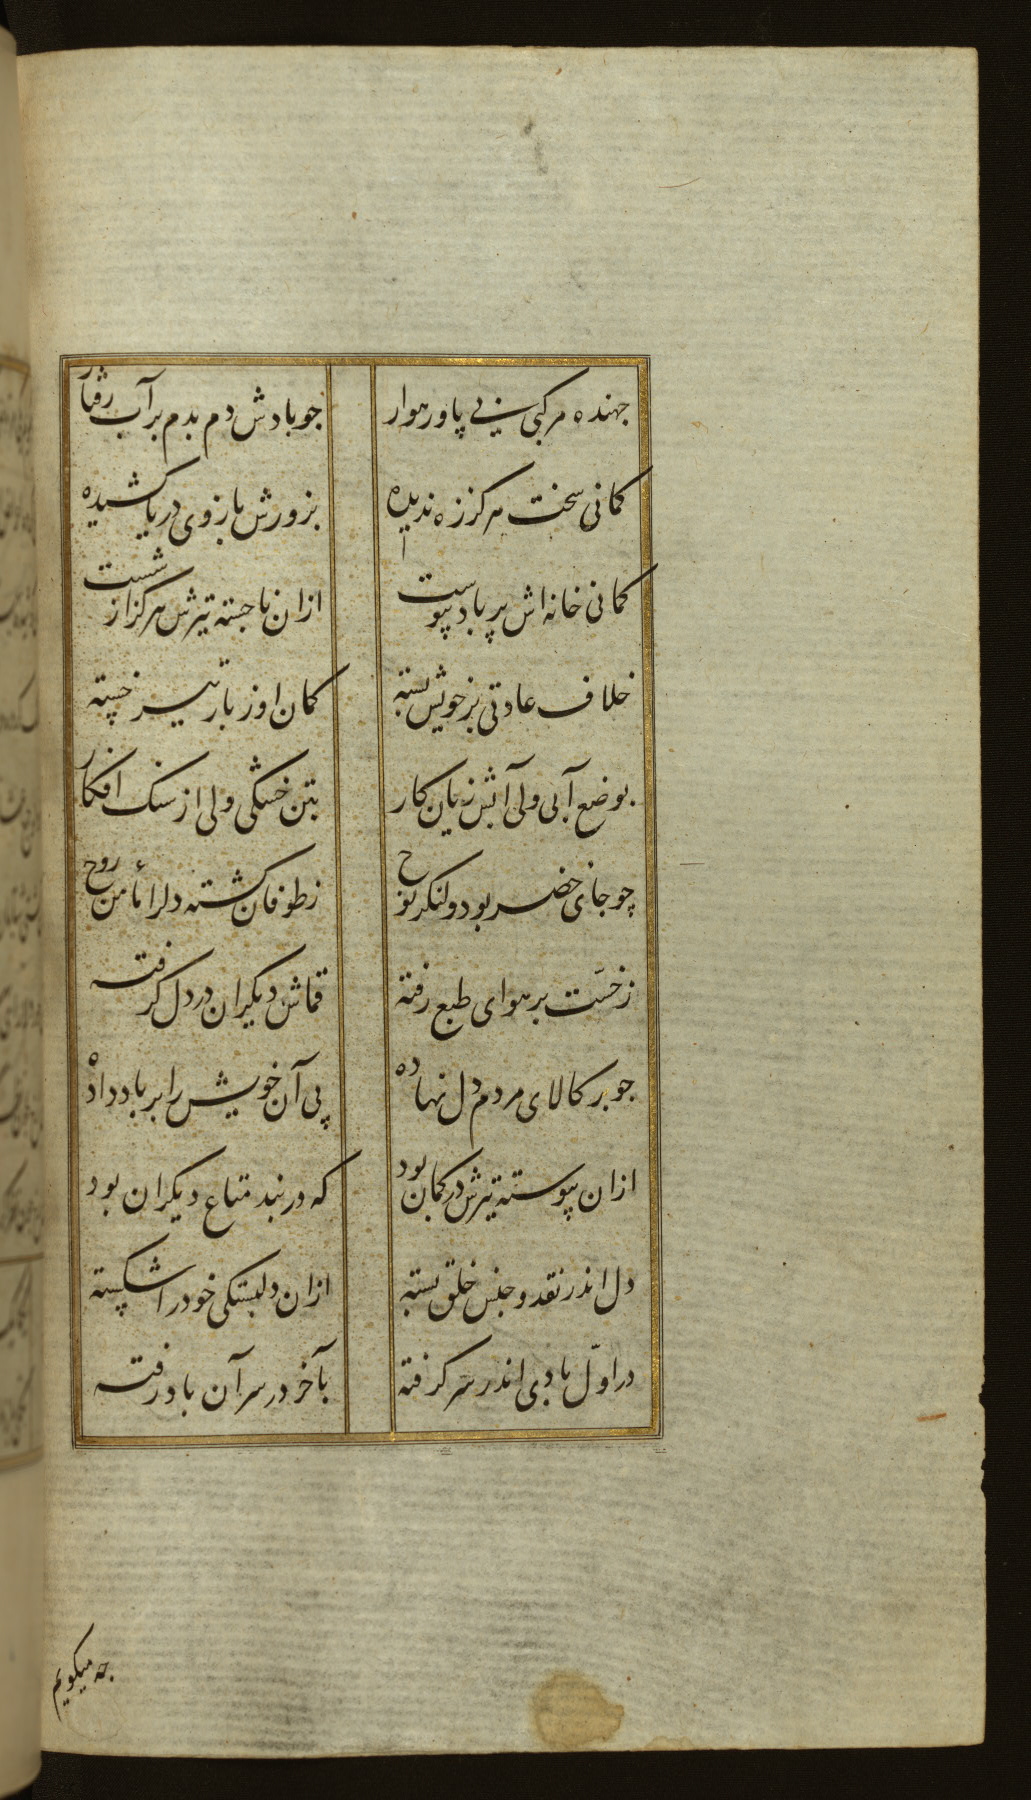 جهنده مرکبی بی پا و رهوار
جو بادش دم بدم بر آب رفتار
کمانی سخت هرکز زه ندیده
بزورش بازوی دریا کشیده
کمانی خانه اش پر باد پیوست
ازان ناجسته تیرش هرکز از شست
خلاف عادتی بر خویش بسته
کمان او ز بار تیر خسته
بوضع آبی ولی آتش زیان کار
بتن خشکی ولی از سنک افکار
چو جای خضر بود و لنکر نوح
زطوفان کشته دلرا مأمن روح
زخسّت بر هوای طبع رفته
قماش دیکران در دل کرفته
جو بر کالای مردم دل نهاده
پی آن خویش را بر باد داده
ازان پیوسته تیرش در کمان بود
که در بند متاع دیکران بود
دل اندر نقد و جنس خلق بسته
ازان دلبستکی خود را شکسته
در اوّل بادی اندر سر کرفته
بآخر در سر آن باد رفته
جه میکویم